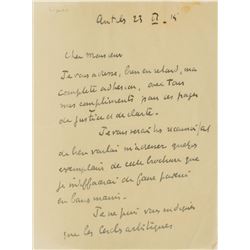 Cher Monsieur
Je vous adresse, bien en retard, ma
complète adhésion, avec tous
mes compliments pour ces pages
de justice et de clarté.
Je vous serais très reconnaissant
de bien vouloir m'adresser quelques
exemplaires de cette brochure que
je m'efforcerai de faire parvenir
en bonnes mains.
Je ne puis vous indiquer
que les Cercles artistiques